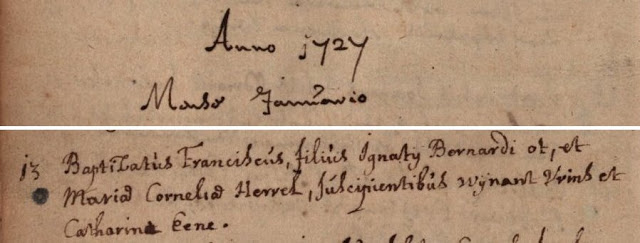 Anno 1727
Mense Januario
13 Baptizatus Franciscus, filius Ignatij Bernardi ot, et
Mariæ Corneliæ Herret, suscipientibus wijnant Vrins et
Catharina Cene.